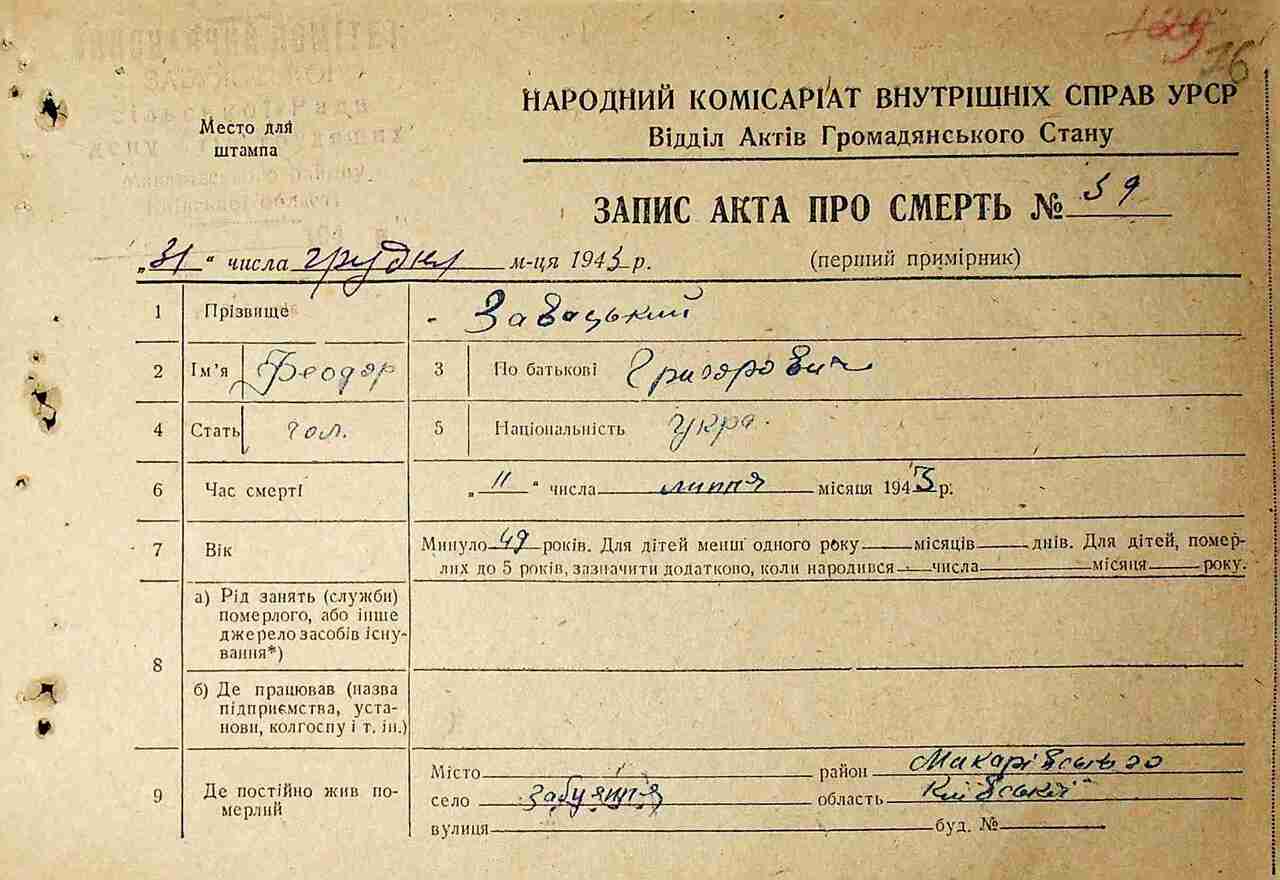 129
76
НАРОДНИЙ КОМІСАРІАТ ВНУТРІШНІХ СПРАВ УРСР
Відділ Актів Громадянського Стану
Место для
штампа
ЗАПИС АКТА ПРО СМЕРТЬ № 59
„31“ числа грудня м-ця 1943 р. (перший примірник)
1 Прізвище Завацький
2 Ім’я Феодор 3 По батькові Григорович
4 Стать чол. 5 Національність укра.
6 Час смерті „11“ числа липня місяця 1943 р.
7 Вік Минуло 49 років. Для дітей менш одного року місяців днів. Для дітей, помер-
лих до 5 років, зазначити додатково, коли народився числа місяця року.
8 а) Рід занять (служби)
померлого, або інше
джерело засобів існу-
вання*)
б) Де працював (назва
підприємства, уста-
нови, колгоспу і т. ін.)
9 Де постійно жив по-
мерлий
Місто район Макарівського
село Забуяння область Київської
вулиця буд. №